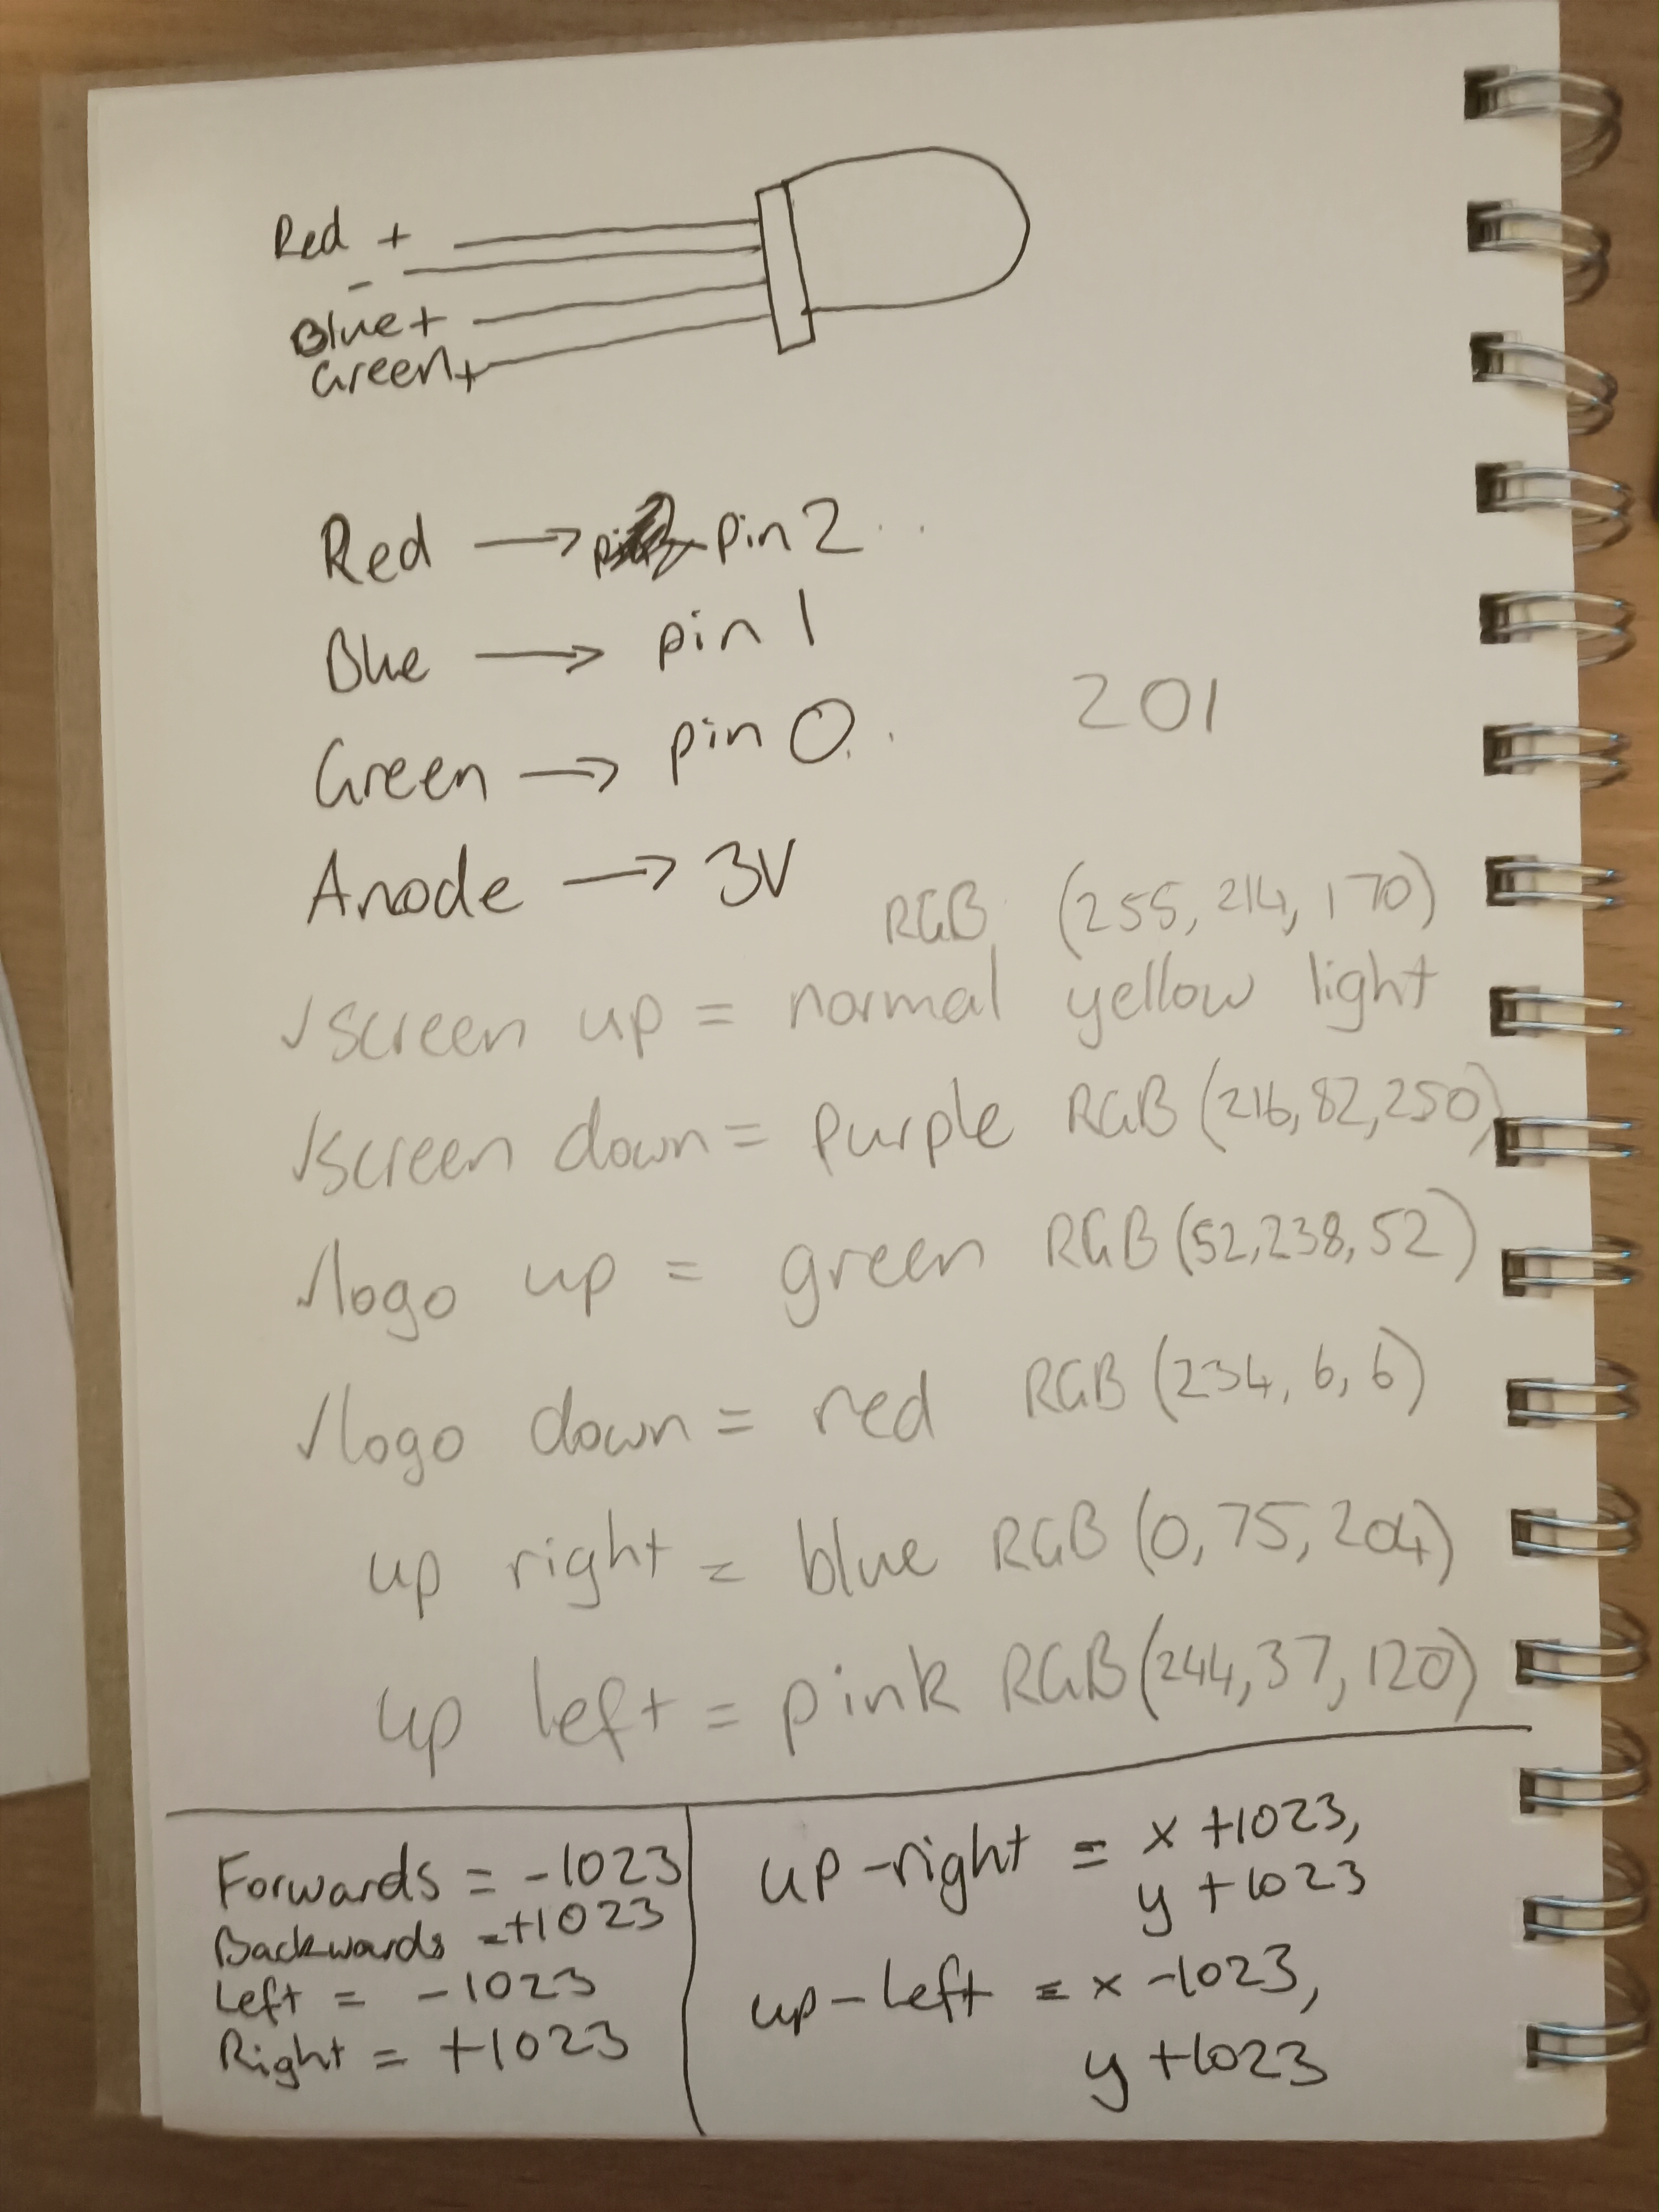 Red +
-
Blue +
Green +
Red → pin 2
Blue → pin 1
201
Green → pin 0
Anode → 3V
RGB (255, 214, 170)
✓screen up = normal yellow light
✓screen down = purple RGB (216, 82, 250)
✓logo up = green RGB (52, 238, 52)
✓logo down = red RGB (234, 6, 6)
up right = blue RGB (0, 75, 204)
up left = pink RGB (244, 37, 120)
Forwards = -1023
Backwards = +1023
Left = -1023
Right = +1023
up-right = x +1023,
y +1023
up-left = x -1023,
y +1023